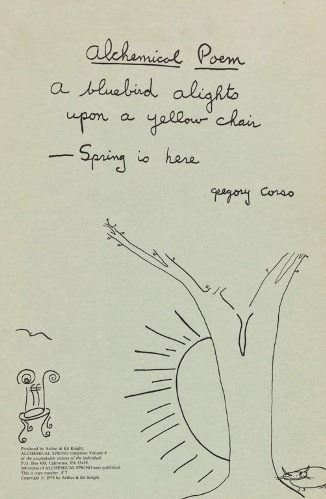 Alchemical Poem
a bluebird alights
upon a yellow chair
— Spring is here
gregory corso
Produced by Arthur & Kit Knight.
ALCHEMICAL SPRING comprises Volume 9
of the unspeakable visions of the individual,
P.O. Box 439, California, PA 15419.
500 copies of ALCHEMICAL SPRING were published.
This is copy number 57
Copyright © 1979 by Arthur & Kit Knight.